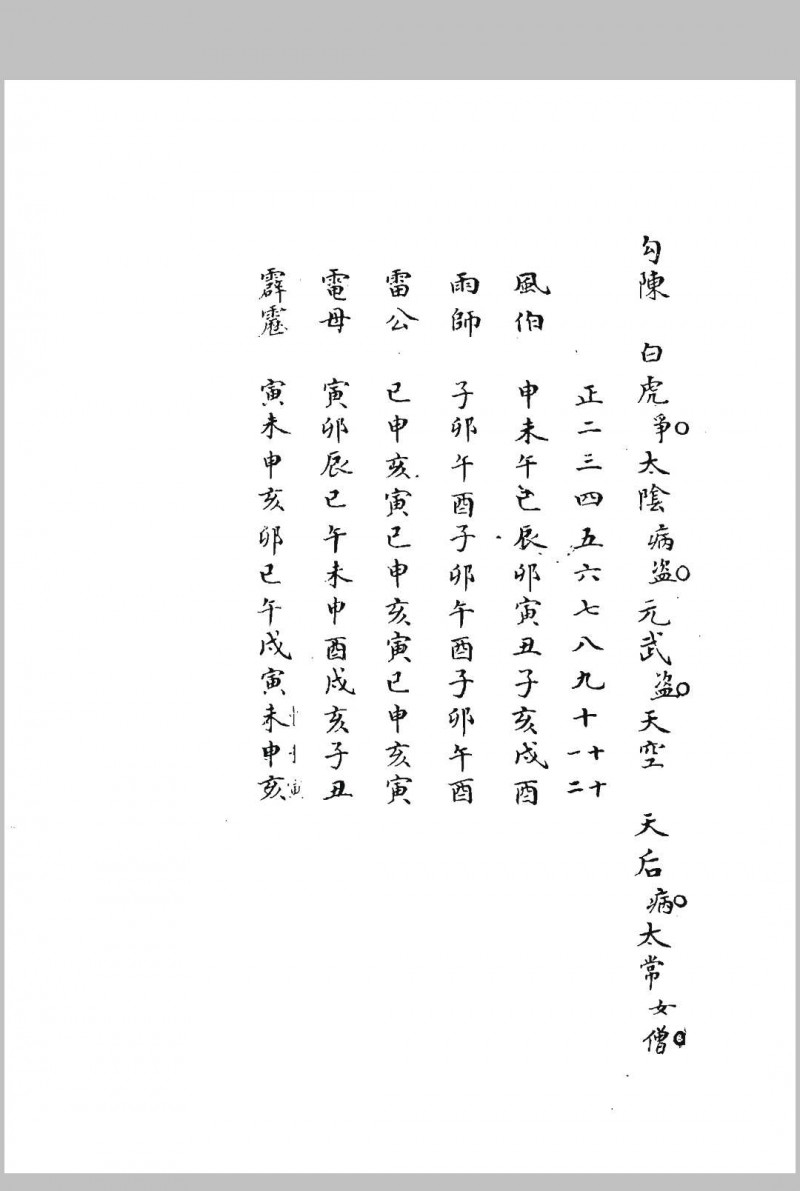 勾陳　白虎爭○太陰病盗○元武盗○天空　天后病○太常女僧
正二三四五六七八九十十一十二
風伯　申未午巳辰卯寅丑子亥戌酉
雨師　子卯午酉子卯午酉子卯午酉
雷公　巳申亥寅巳申亥寅巳申亥寅
電母　寅卯辰巳午未申酉戌亥子丑
霹靂　寅未申亥卯巳午戌寅未申亥
寅